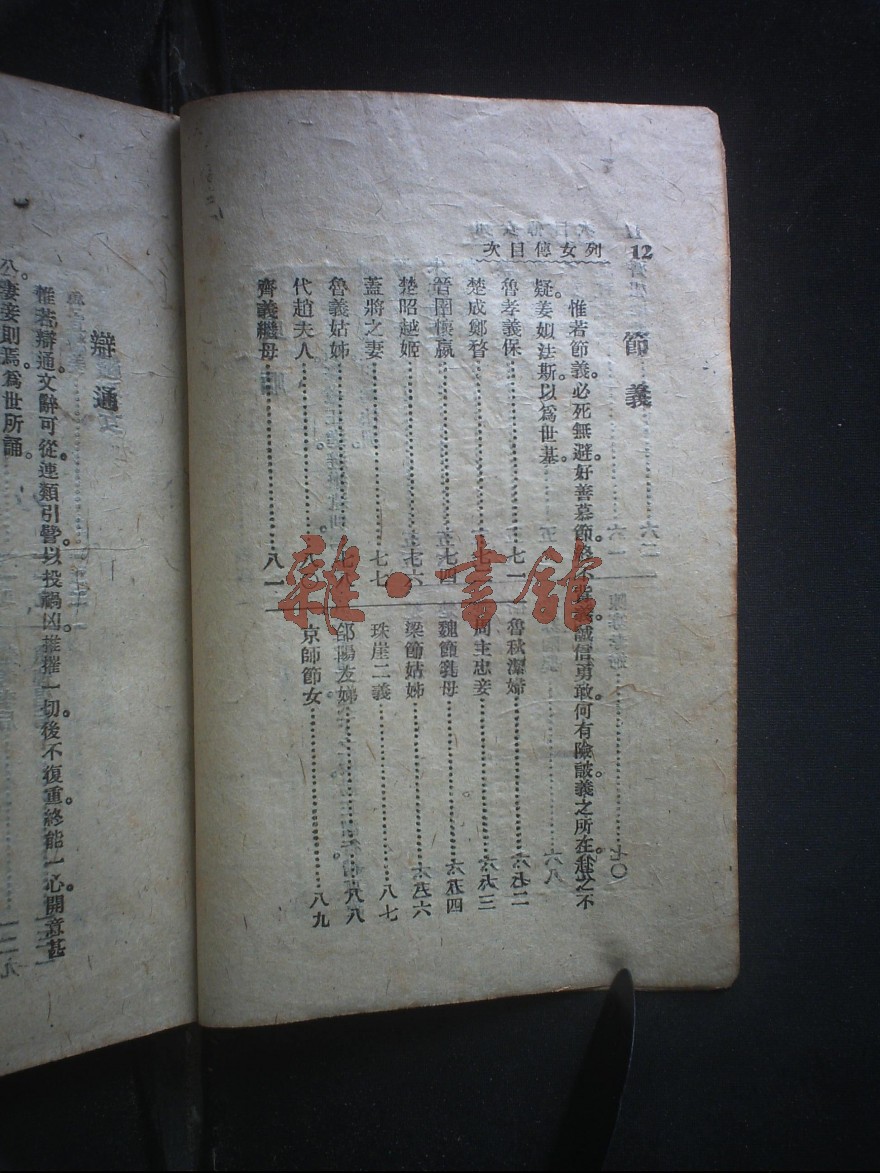 12
列女傳目次
節義
惟若節義。必死無避。好善慕節。終不背義。誠信勇敢。何有險詖。義之所在。赴之不
疑。姜姒法斯。以爲世基。
魯孝義保 七一
魯秋潔婦 八二
楚成鄭瞀
周主忠妾 八三
晉圉懷嬴 七四
魏節乳母 八四
楚昭越姬 七六
梁節姑姊 八六
蓋將之妻 七七
珠崖二義 八七
魯義姑姊
郃陽友娣 八八
代趙夫人
京師節女 八九
齊義繼母 八一
辯通
惟若辯通。文辭可從。連類引譬。以投禍凶。推摧一切。後不復重。終能一心。開意甚
公。妻妾則焉。爲世所誦。
雜·書館